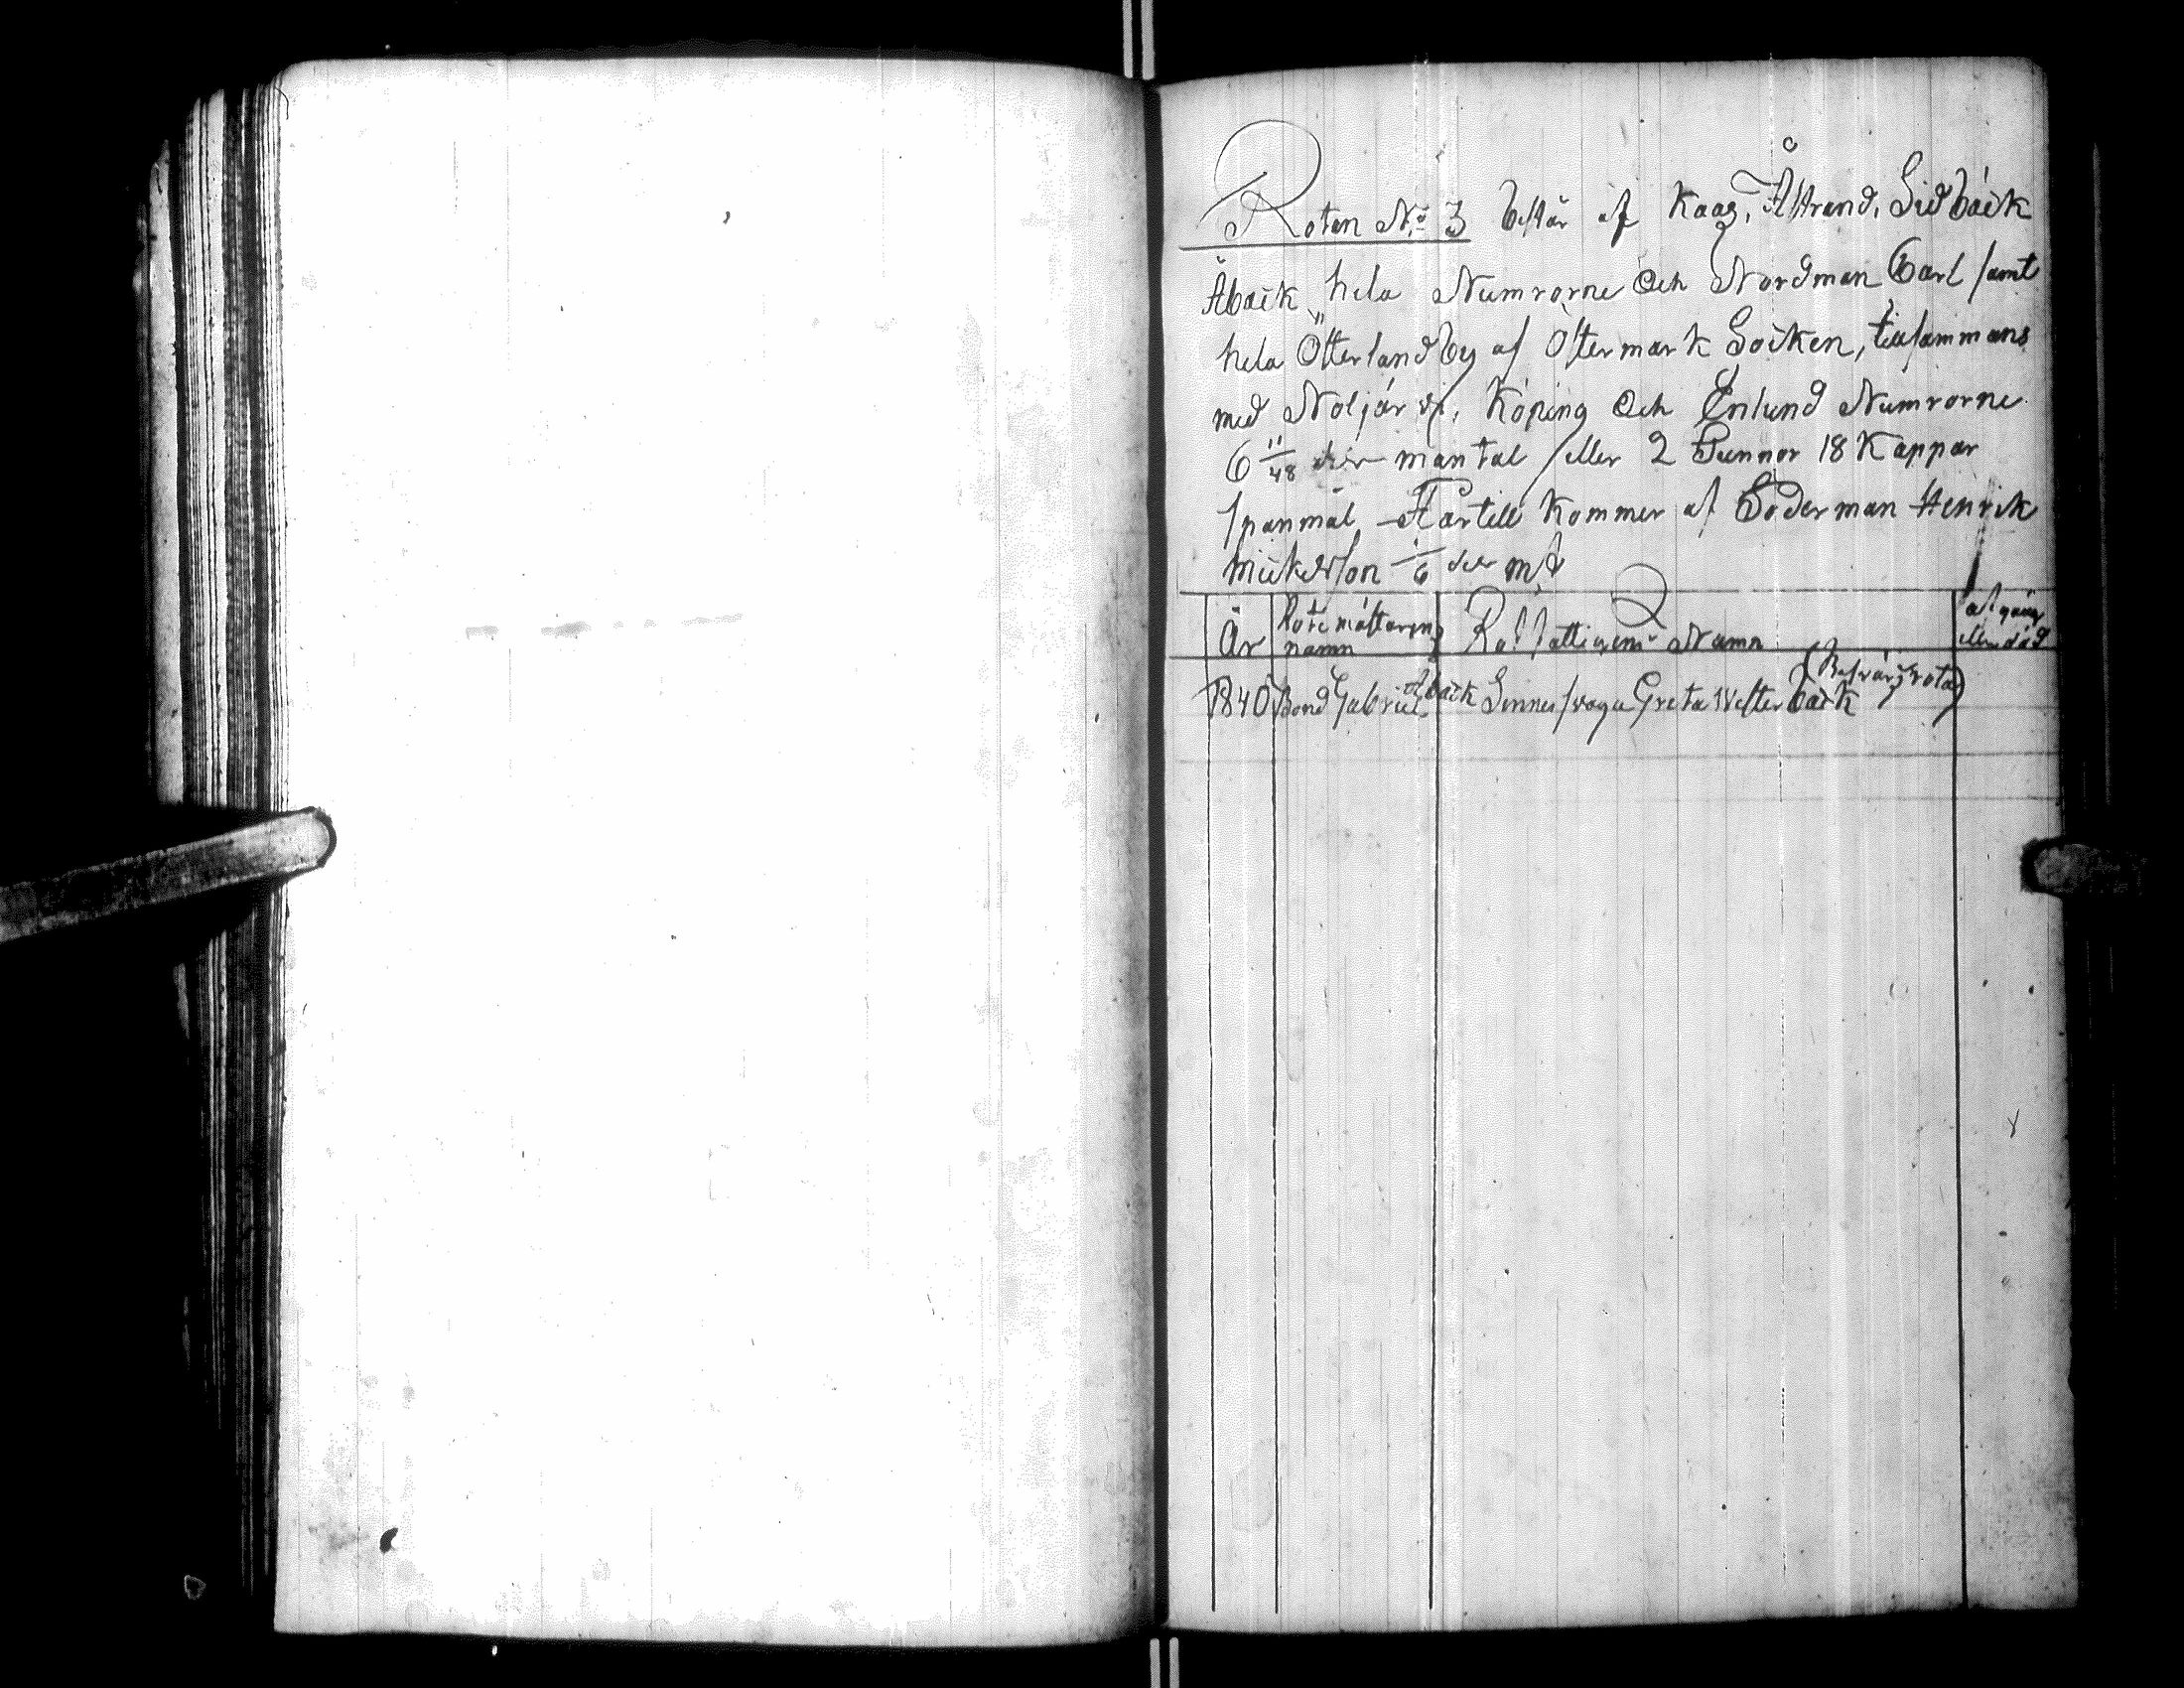 Roten No 3 består af Kaag, Åstrand, Sidbäck
Åbäck, hela Numrorne Och Nordman Carl samt
hela Österland by af Östermark Socken, tillsammans
med Noljärvi, Köping Och Enlund Numrorne
6 11/48 dels mantal eller 2 Tunnor 18 Kappar
spanmål, Härtill kommer af Söderman Henrik
Mickelsson 1/6 dels mt
År
Rotemästarens
namn
Rot fattigens Namn
afgång
eller död
1840 Bond Gabriel Åbäck Sinnessvaga Greta Westerbäck